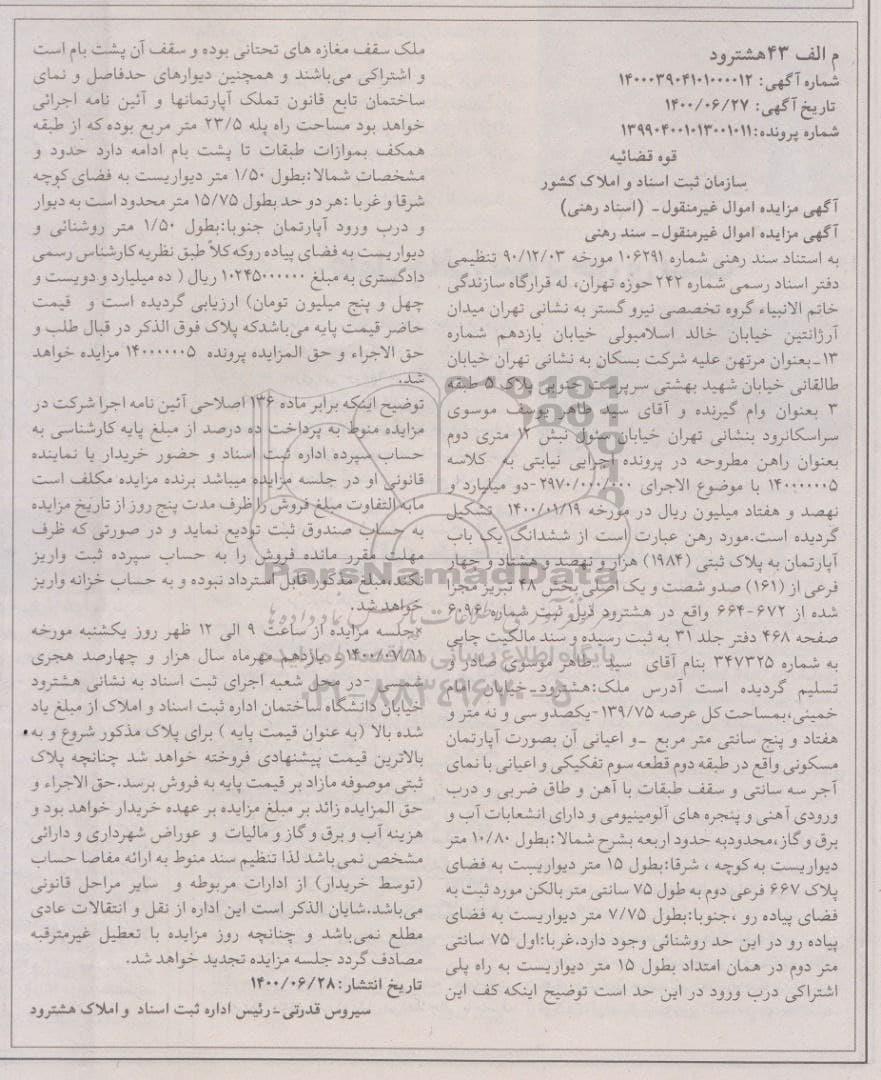 م الف ۴۳هشترود
شماره آگهی: ۱۴۰۰۰۳۹۰۴۱۰۱۰۰۰۰۱۲
تاریخ آگهی: ۱۴۰۰/۰۶/۲۷
شماره پرونده:۱۳۹۹۰۴۰۰۱۰۱۳۰۰۱۰۱۱
قوه قضائیه
سازمان ثبت اسناد و املاک کشور
آگهی مزایده اموال غیرمنقول- (اسناد رهنی)
آگهی مزایده اموال غیرمنقول- سند رهنی
به استناد سند رهنی شماره ۱۰۶۲۹۱ مورخه ۹۰/۱۲/۰۳ تنظیمی
دفتر اسناد رسمی شماره ۲۴۲ حوزه تهران، له قرارگاه سازندگی
خاتم الانبیاء گروه تخصصی نیرو گستر به نشانی تهران میدان
آرژانتین خیابان خالد اسلامبولی خیابان یازدهم شماره
۱۳-بعنوان مرتهن علیه شرکت بسکان به نشانی تهران خیابان
طالقانی خیابان شهید بهشتی سرپرست جنوبی پلاک ۵ طبقه
۳ بعنوان وام گیرنده و آقای سید طاهر یوسف موسوی
سراسکانرود بنشانی تهران خیابان سئول نبش ۱۲ متری دوم
بعنوان راهن مطروحه در پرونده اجرایی نیابتی به کلاسه
۱۴۰۰۰۰۰۵ با موضوع الاجرای ۲۹۷۰/۰۰۰/۰۰۰-دو میلیارد و
نهصد و هفتاد میلیون ریال در مورخه ۱۴۰۰/۰۱/۱۹ تشکیل
گردیده است.مورد رهن عبارت است از ششدانگ یک باب
آپارتمان به پلاک ثبتی (۱۹۸۴) هزار و نهصد و هشتاد و چهار
فرعی از (۱۶۱) صدو شصت و یک اصلی بخش ۴۸ تبریز مجزا
شده از ۶۷۲-۶۶۴ واقع در هشترود ذیل ثبت شماره ۶۰۹۶
صفحه ۴۶۸ دفتر جلد ۳۱ به ثبت رسیده و سند مالکیت چاپی
به شماره ۳۴۷۳۲۵ بنام آقای سید طاهر موسوی صادر و
تسلیم گردیده است آدرس ملک:هشترود-خیابان امام
خمینی،بمساحت کل عرصه ۱۳۹/۷۵-یکصدو سی و نه متر و
هفتاد و پنج سانتی متر مربع -و اعیانی آن بصورت آپارتمان
مسکونی واقع در طبقه دوم قطعه سوم تفکیکی و اعیانی با نمای
آجر سه سانتی و سقف طبقات با آهن و طاق ضربی و درب
ورودی آهنی و پنجره های آلومینیومی و دارای انشعابات آب و
برق و گاز،محدودبه حدود اربعه بشرح شمالا:بطول ۱۰/۸۰ متر
دیواریست به کوچه ، شرقا:بطول ۱۵ متر دیواریست به فضای
پلاک ۶۶۷ فرعی دوم به طول ۷۵ سانتی متر بالکن مورد ثبت به
فضای پیاده رو ،جنوبا:بطول ۷/۷۵ متر دیواریست به فضای
پیاده رو در این حد روشنائی وجود دارد.غربا:اول ۷۵ سانتی
متر دوم در همان امتداد بطول ۱۵ متر دیواریست به راه پلی
اشتراکی درب ورود در این حد است توضیح اینکه کف این
ملک سقف مغازه های تحتانی بوده و سقف آن پشت بام است
و اشتراکی می‌باشند و همچنین دیوارهای حدفاصل و نمای
ساختمان تابع قانون تملک آپارتمانها و آئین نامه اجرائی
خواهد بود مساحت راه پله ۲۳/۵ متر مربع بوده که از طبقه
همکف بموازات طبقات تا پشت بام ادامه دارد حدود و
مشخصات شمالا:بطول ۱/۵۰ متر دیواریست به فضای کوچه
شرقا و غربا :هر دو حد بطول ۱۵/۷۵ متر محدود است به دیوار
و درب ورود آپارتمان جنوبا:بطول ۱/۵۰ متر روشنائی و
دیواریست به فضای پیاده روکه کلاً طبق نظریه کارشناس رسمی
دادگستری به مبلغ ۱۰۲۴۵۰۰۰۰۰۰ ریال ( ده میلیارد و دویست و
چهل و پنج میلیون تومان) ارزیابی گردیده است و قیمت
حاضر قیمت پایه می‌باشدکه پلاک فوق الذکر در قبال طلب و
حق الاجراء و حق المزایده پرونده ۱۴۰۰۰۰۰۵ مزایده خواهد
شد.
توضیح اینکه برابر ماده ۱۳۶ اصلاحی آئین نامه اجرا شرکت در
مزایده منوط به پرداخت ده درصد از مبلغ پایه کارشناسی به
حساب سپرده اداره ثبت اسناد و حضور خریدار یا نماینده
قانونی او در جلسه مزایده میباشد برنده مزایده مکلف است
مابه التفاوت مبلغ فروش را ظرف مدت پنج روز از تاریخ مزایده
به حساب صندوق ثبت تودیع نماید و در صورتی که ظرف
مهلت مقرر مانده فروش را به حساب سپرده ثبت واریز
نکند،مبلغ مذکور قابل استرداد نبوده و به حساب خزانه واریز
خواهد شد.
*جلسه مزایده از ساعت ۹ الی ۱۲ ظهر روز یکشنبه مورخه
۱۴۰۰/۰۷/۱۱- یازدهم مهرماه سال هزار و چهارصد هجری
شمسی -در محل شعبه اجرای ثبت اسناد به نشانی هشترود
خیابان دانشگاه ساختمان اداره ثبت اسناد و املاک از مبلغ یاد
شده بالا (به عنوان قیمت پایه ) برای پلاک مذکور شروع و به
بالاترین قیمت پیشنهادی فروخته خواهد شد چنانچه پلاک
ثبتی موصوفه مازاد بر قیمت پایه به فروش برسد.حق الاجراء و
حق المزایده زائد بر مبلغ مزایده بر عهده خریدار خواهد بود و
هزینه آب و برق و گاز و مالیات و عوراض شهرداری و دارائی
مشخص نمی‌باشد لذا تنظیم سند منوط به ارائه مفاصا حساب
(توسط خریدار) از ادارات مربوطه و سایر مراحل قانونی
می‌باشد.شایان الذکر است این اداره از نقل و انتقالات عادی
مطلع نمی‌باشد و چنانچه روز مزایده با تعطیل غیرمترقبه
مصادف گردد جلسه مزایده تجدید خواهد شد.
تاریخ انتشار: ۱۴۰۰/۰۶/۲۸
سیروس قدرتی- رئیس اداره ثبت اسناد و املاک هشترود
ParsNamadData
پایگاه اطلاع رسانی
۰۲۱-۸۸۳۴۹۶۷۰-۵